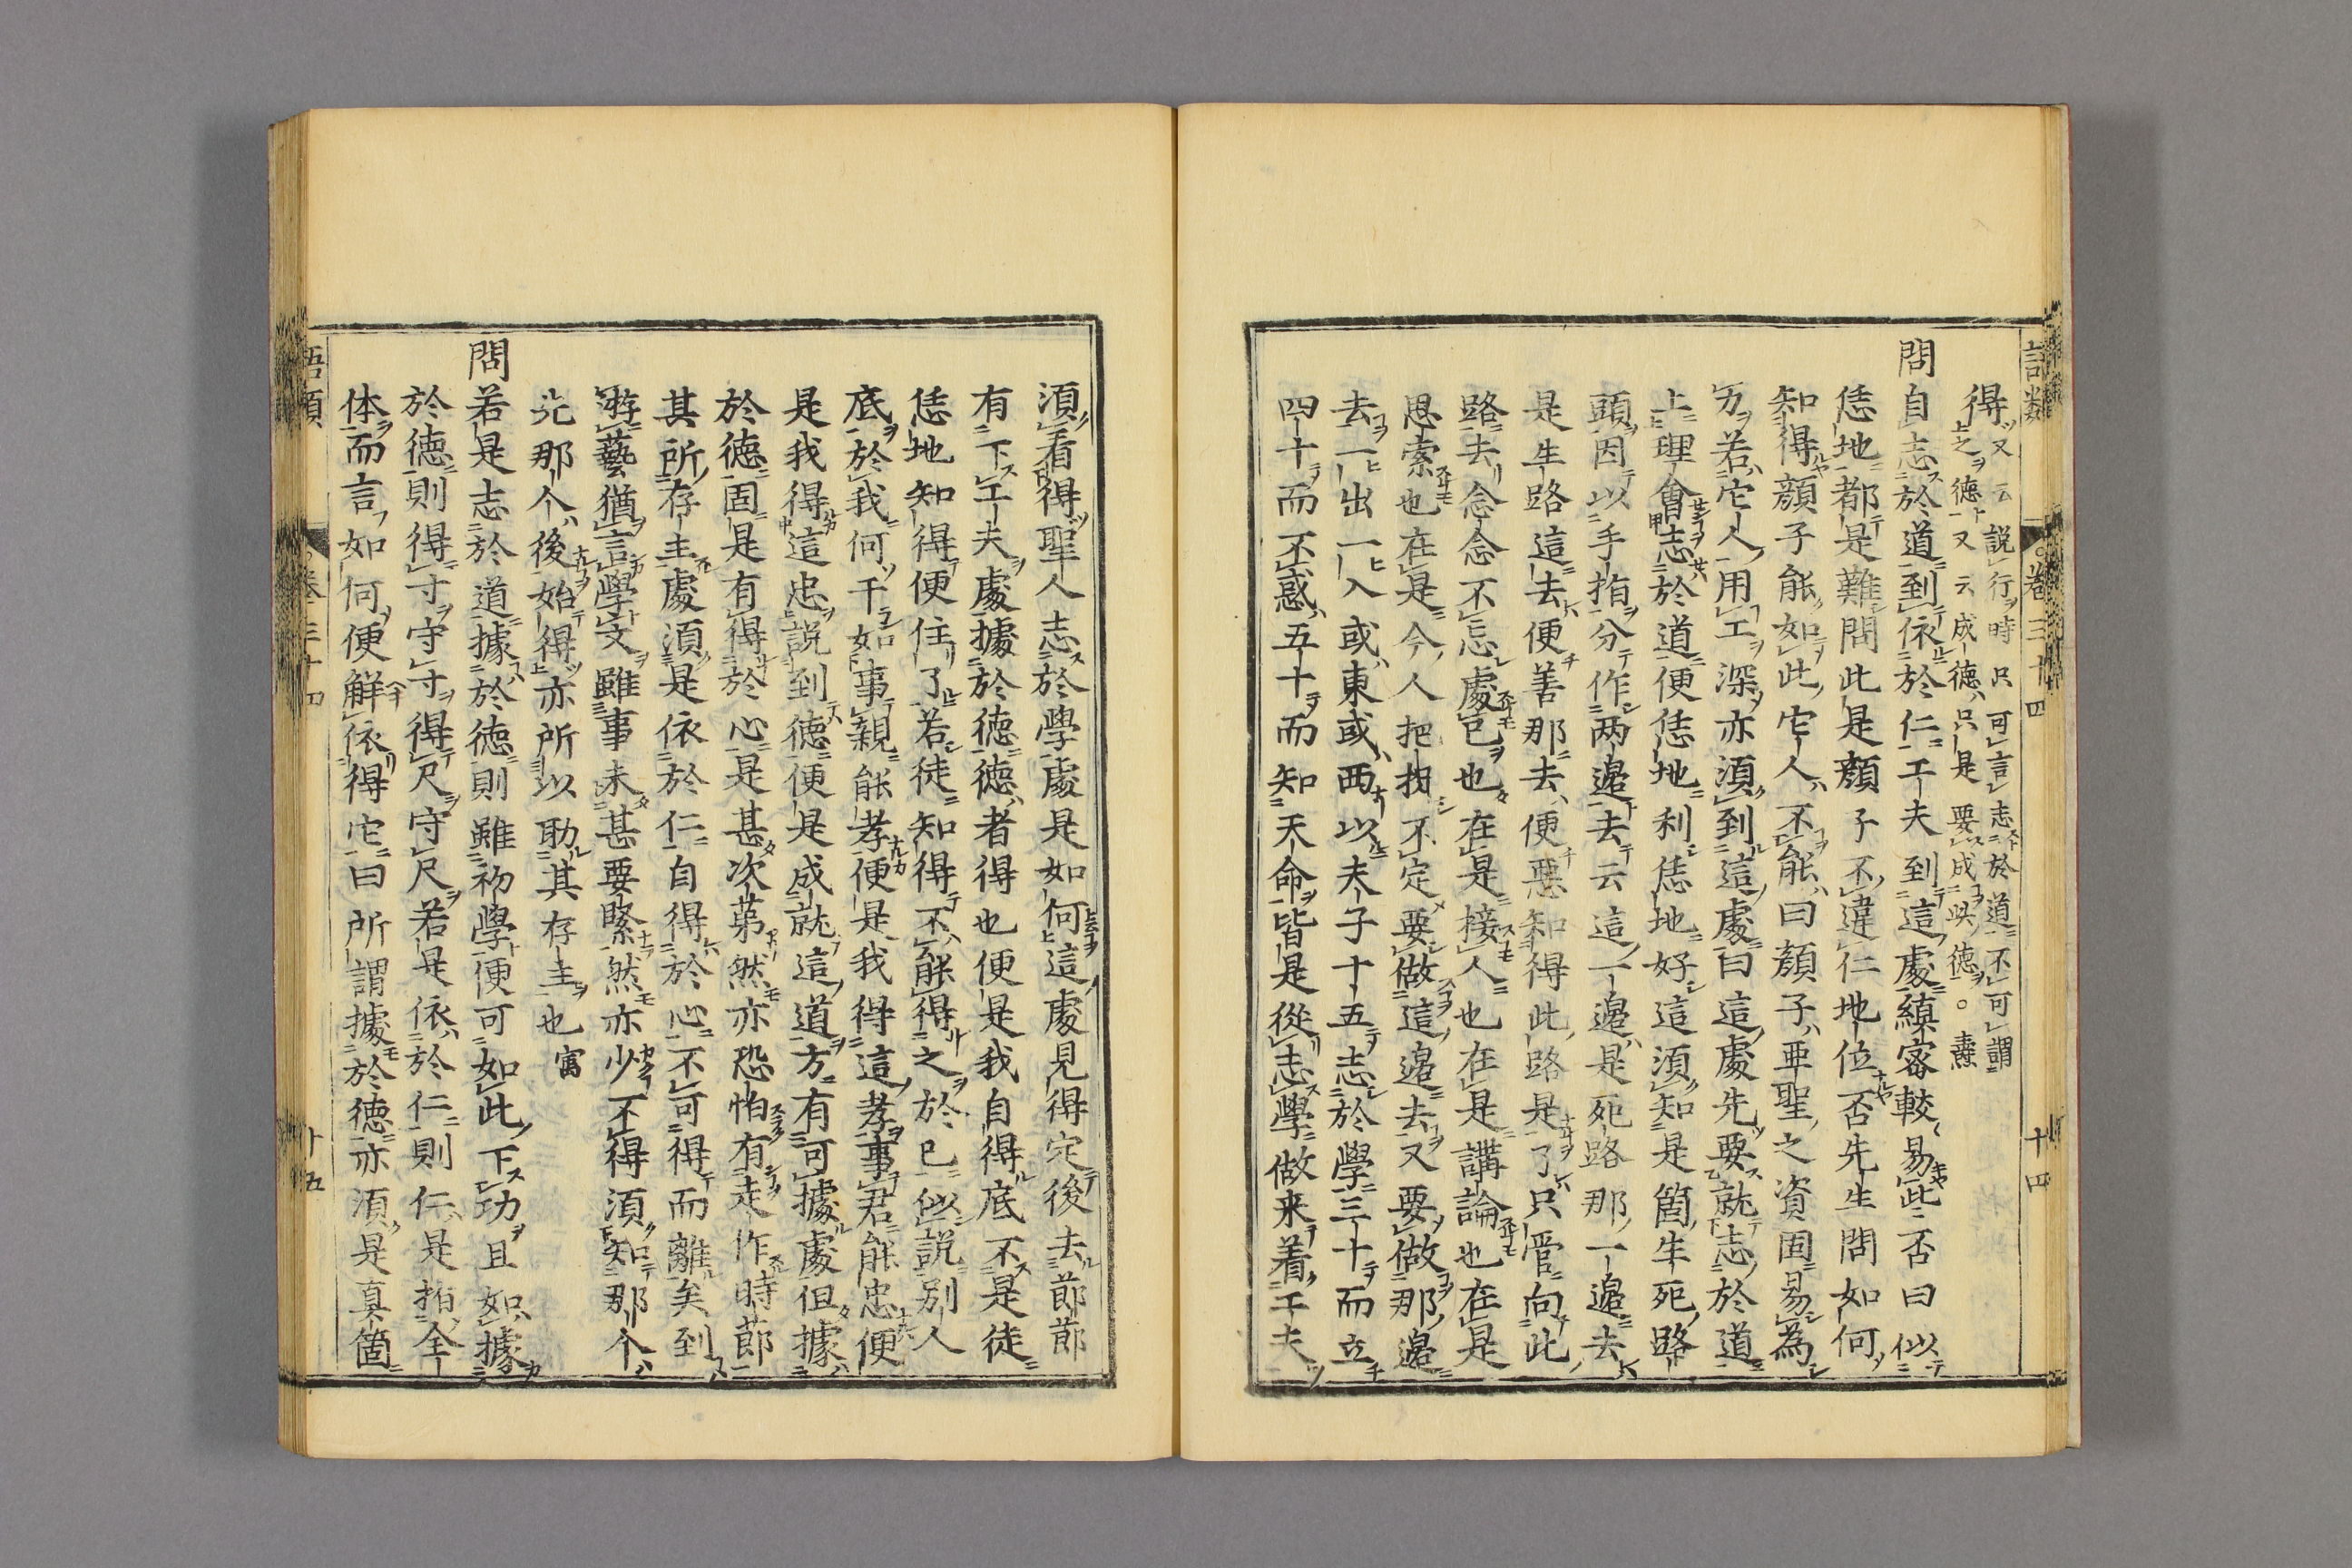 語類 卷三十四 十四
得又云說行時只可言志於道不可謂
之德又云成德只是要成喚德。燾
問自志於道到依於仁工夫到這處縝密較易些否曰似
恁地都是難問此是顏子不違仁地位否先生問如何
知得顏子能如此它人不能曰顏子亞聖之資固易為
力若它人用工深亦須到這處曰這處先要就志於道
上理會志於道便恁地利恁地好這須知是箇生死路
頭因以手指分作两邉去云這一邉是死路那一邉去
是生路這去便善那去便惡知得此路是了只管向此
路去念念不忘處已也在是接人也在是講論也在是
思索也在是今人把捉不定要做這邉去又要做那邉
去一出一入或東或西以夫子十五志於學三十而立
四十而不惑五十而知天命皆是從志學做来着工夫
須看得聖人志於學處是如何這處見得定後去節節
有下工夫處據於德德者得也便是我自得底不是徒
恁地知得便住了若徒知得不能得之於已似說別人
底於我何干如事親能孝便是我得這孝事君能忠便
是我得這忠說到德便是成就這道方有可據處但據
於德固是有得於心是甚次第然亦恐怕有走作時節
其所存主處須是依於仁自得於心不可得而離矣到
游藝猶言學文雖事未甚要緊然亦少不得須知那个
先那个後始得亦所以助其存主也㝢
問若是志於道據於德則雖初學便可如此下功且如據
於德則得寸守寸得尺守尺若是依於仁則仁是指全
体而言如何便解依得它曰所謂據於德亦須是真箇
語類 卷三十四 十五